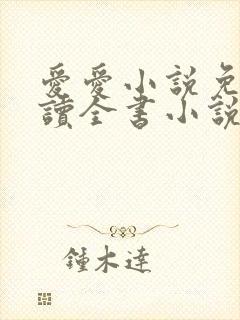 愛愛小説免
讀全書小説
鍾木達